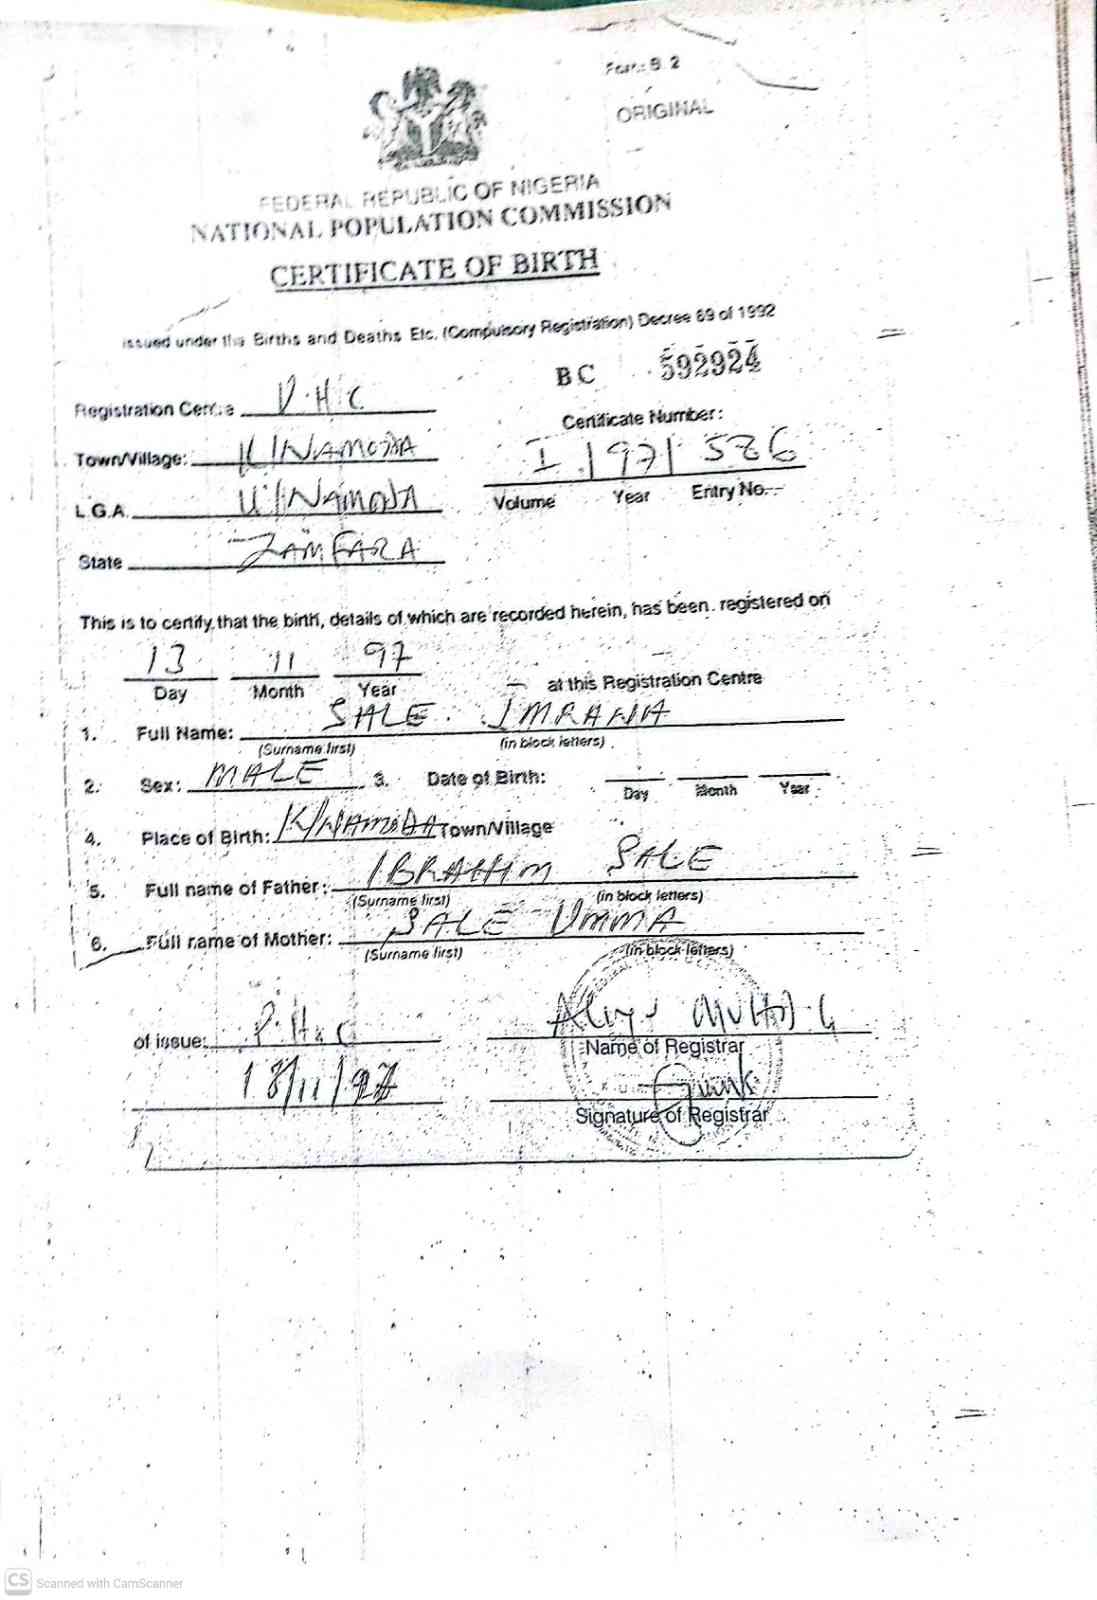 Form B. 2
ORIGINAL
FEDERAL REPUBLIC OF NIGERIA
NATIONAL POPULATION COMMISSION
CERTIFICATE OF BIRTH
issued under the Births and Deaths Etc. (Compulsory Registration) Decree 69 of 1992
BC 592924
Registration Centre P.H.C
Certificate Number:
Town/Village: K/NAMODA
I 197 586
Volume Year Entry No.
L.G.A. K/NAMODA
State ZAMFARA
This is to certify that the birth, details of which are recorded herein, has been registered on
13 11 97
Day Month Year at this Registration Centre
1. Full Name: SALE IMRANA
(Surname first) (in block letters)
2. Sex: MALE 3. Date of Birth:
Day Month Year
4. Place of Birth: K/NAMODA Town/Village
5. Full name of Father: IBRAHIM SALE
(Surname first) (in block letters)
6. Full name of Mother: SALE UMMA
(Surname first) (in block letters)
of issue: P.H.C
Name of Registrar
13/11/97
Signature of Registrar
CS Scanned with CamScanner